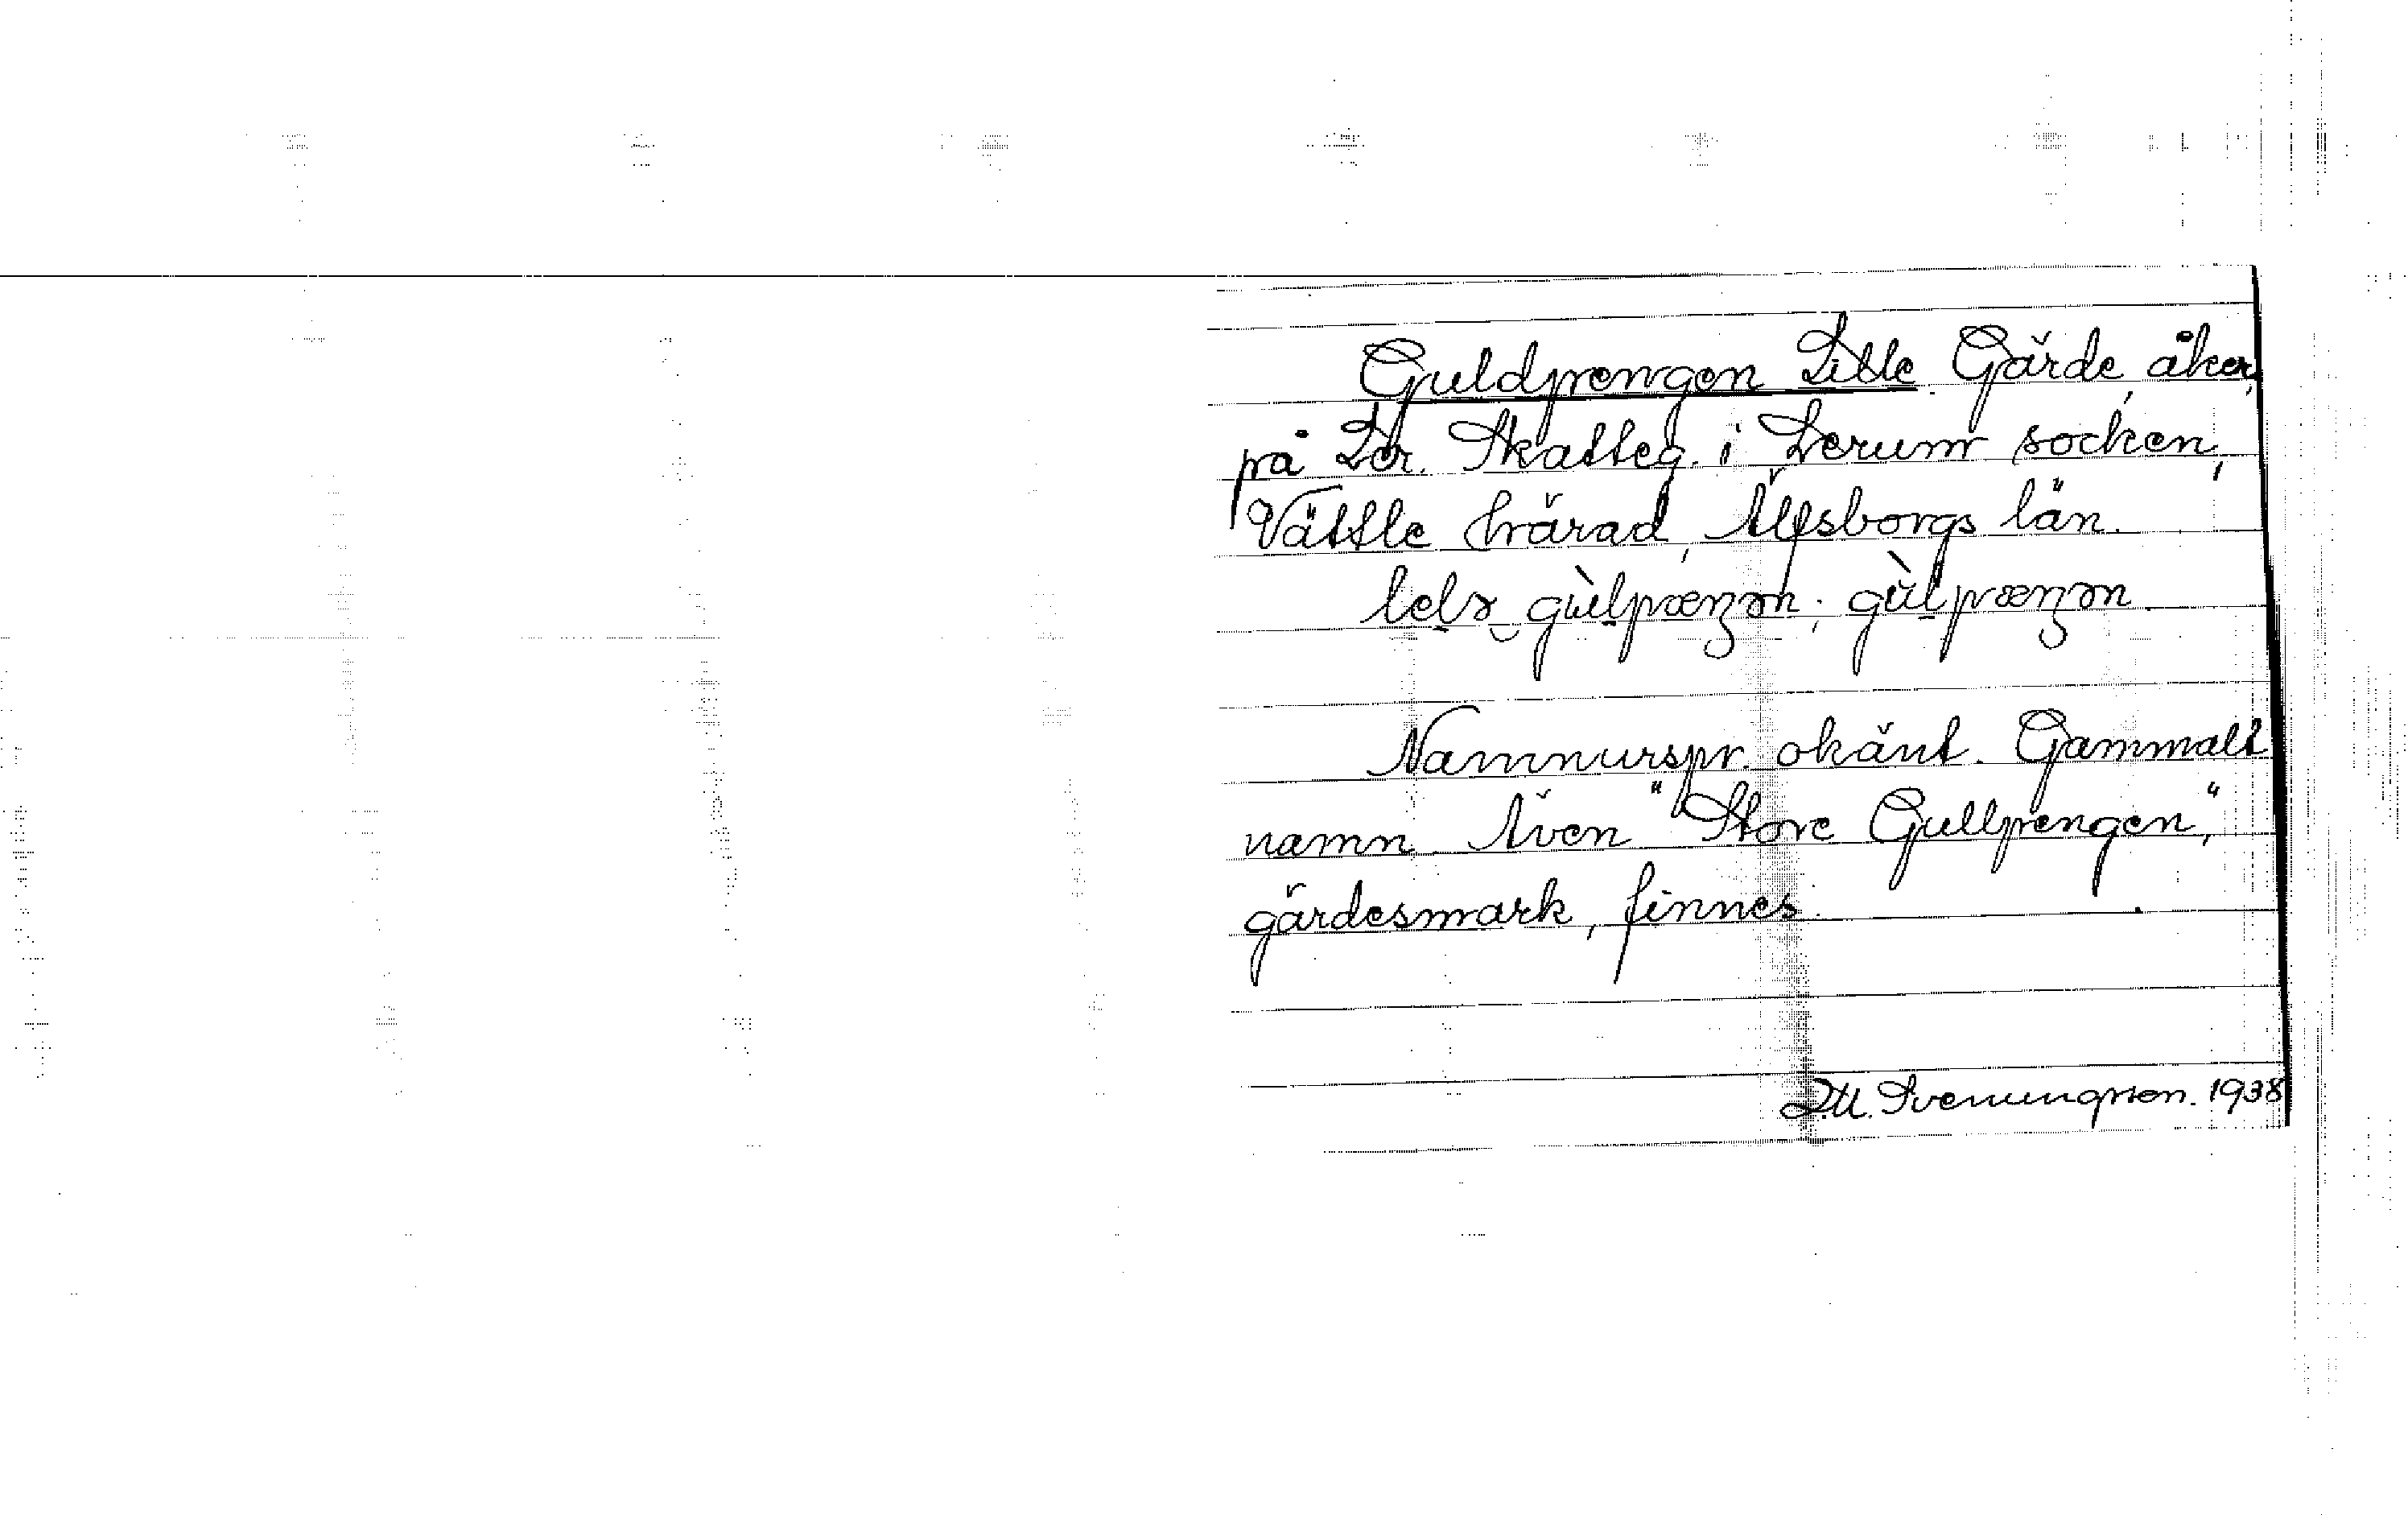 Guldpengen Litle Gärde, åker,
på Ler. Skatteg. i Lerum socken,
Vättle härad, Älfsborgs län.
Namnurspr. okänt. Gammalt
namn. Även "Store Gullpengen",
gärdesmark, finnes.
Svenungsson. 1938